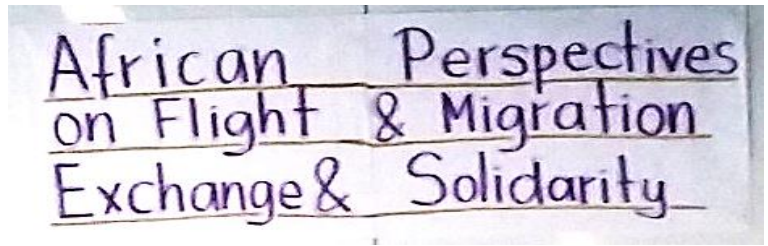 African Perspectives
on Flight & Migration
Exchange & Solidarity